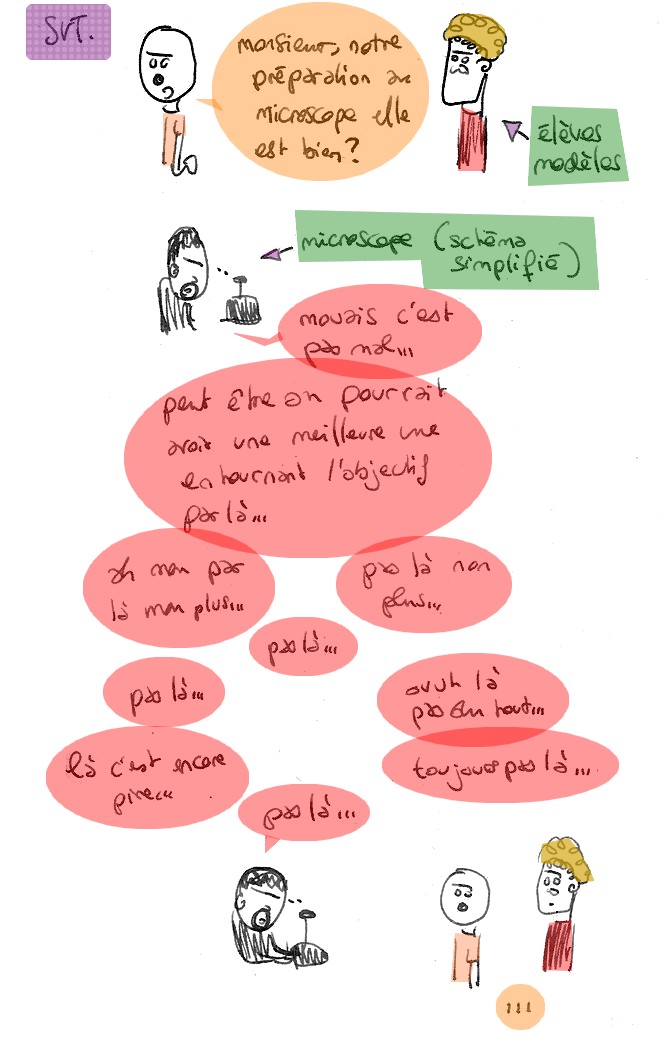 SVT.
monsieur, notre
préparation au
microscope elle
est bien?
élèves
modèles
microscope (schéma
simplifié)
mouais c'est
pas mal...
peut être on pourrait
avoir une meilleure une
en tournant l'objectif
par là...
ah non par
là non plus...
pas là non
plus...
pas là...
pas là...
ouuh là
pas du tout...
là c'est encore
pire...
toujours pas là...
pas là...
...